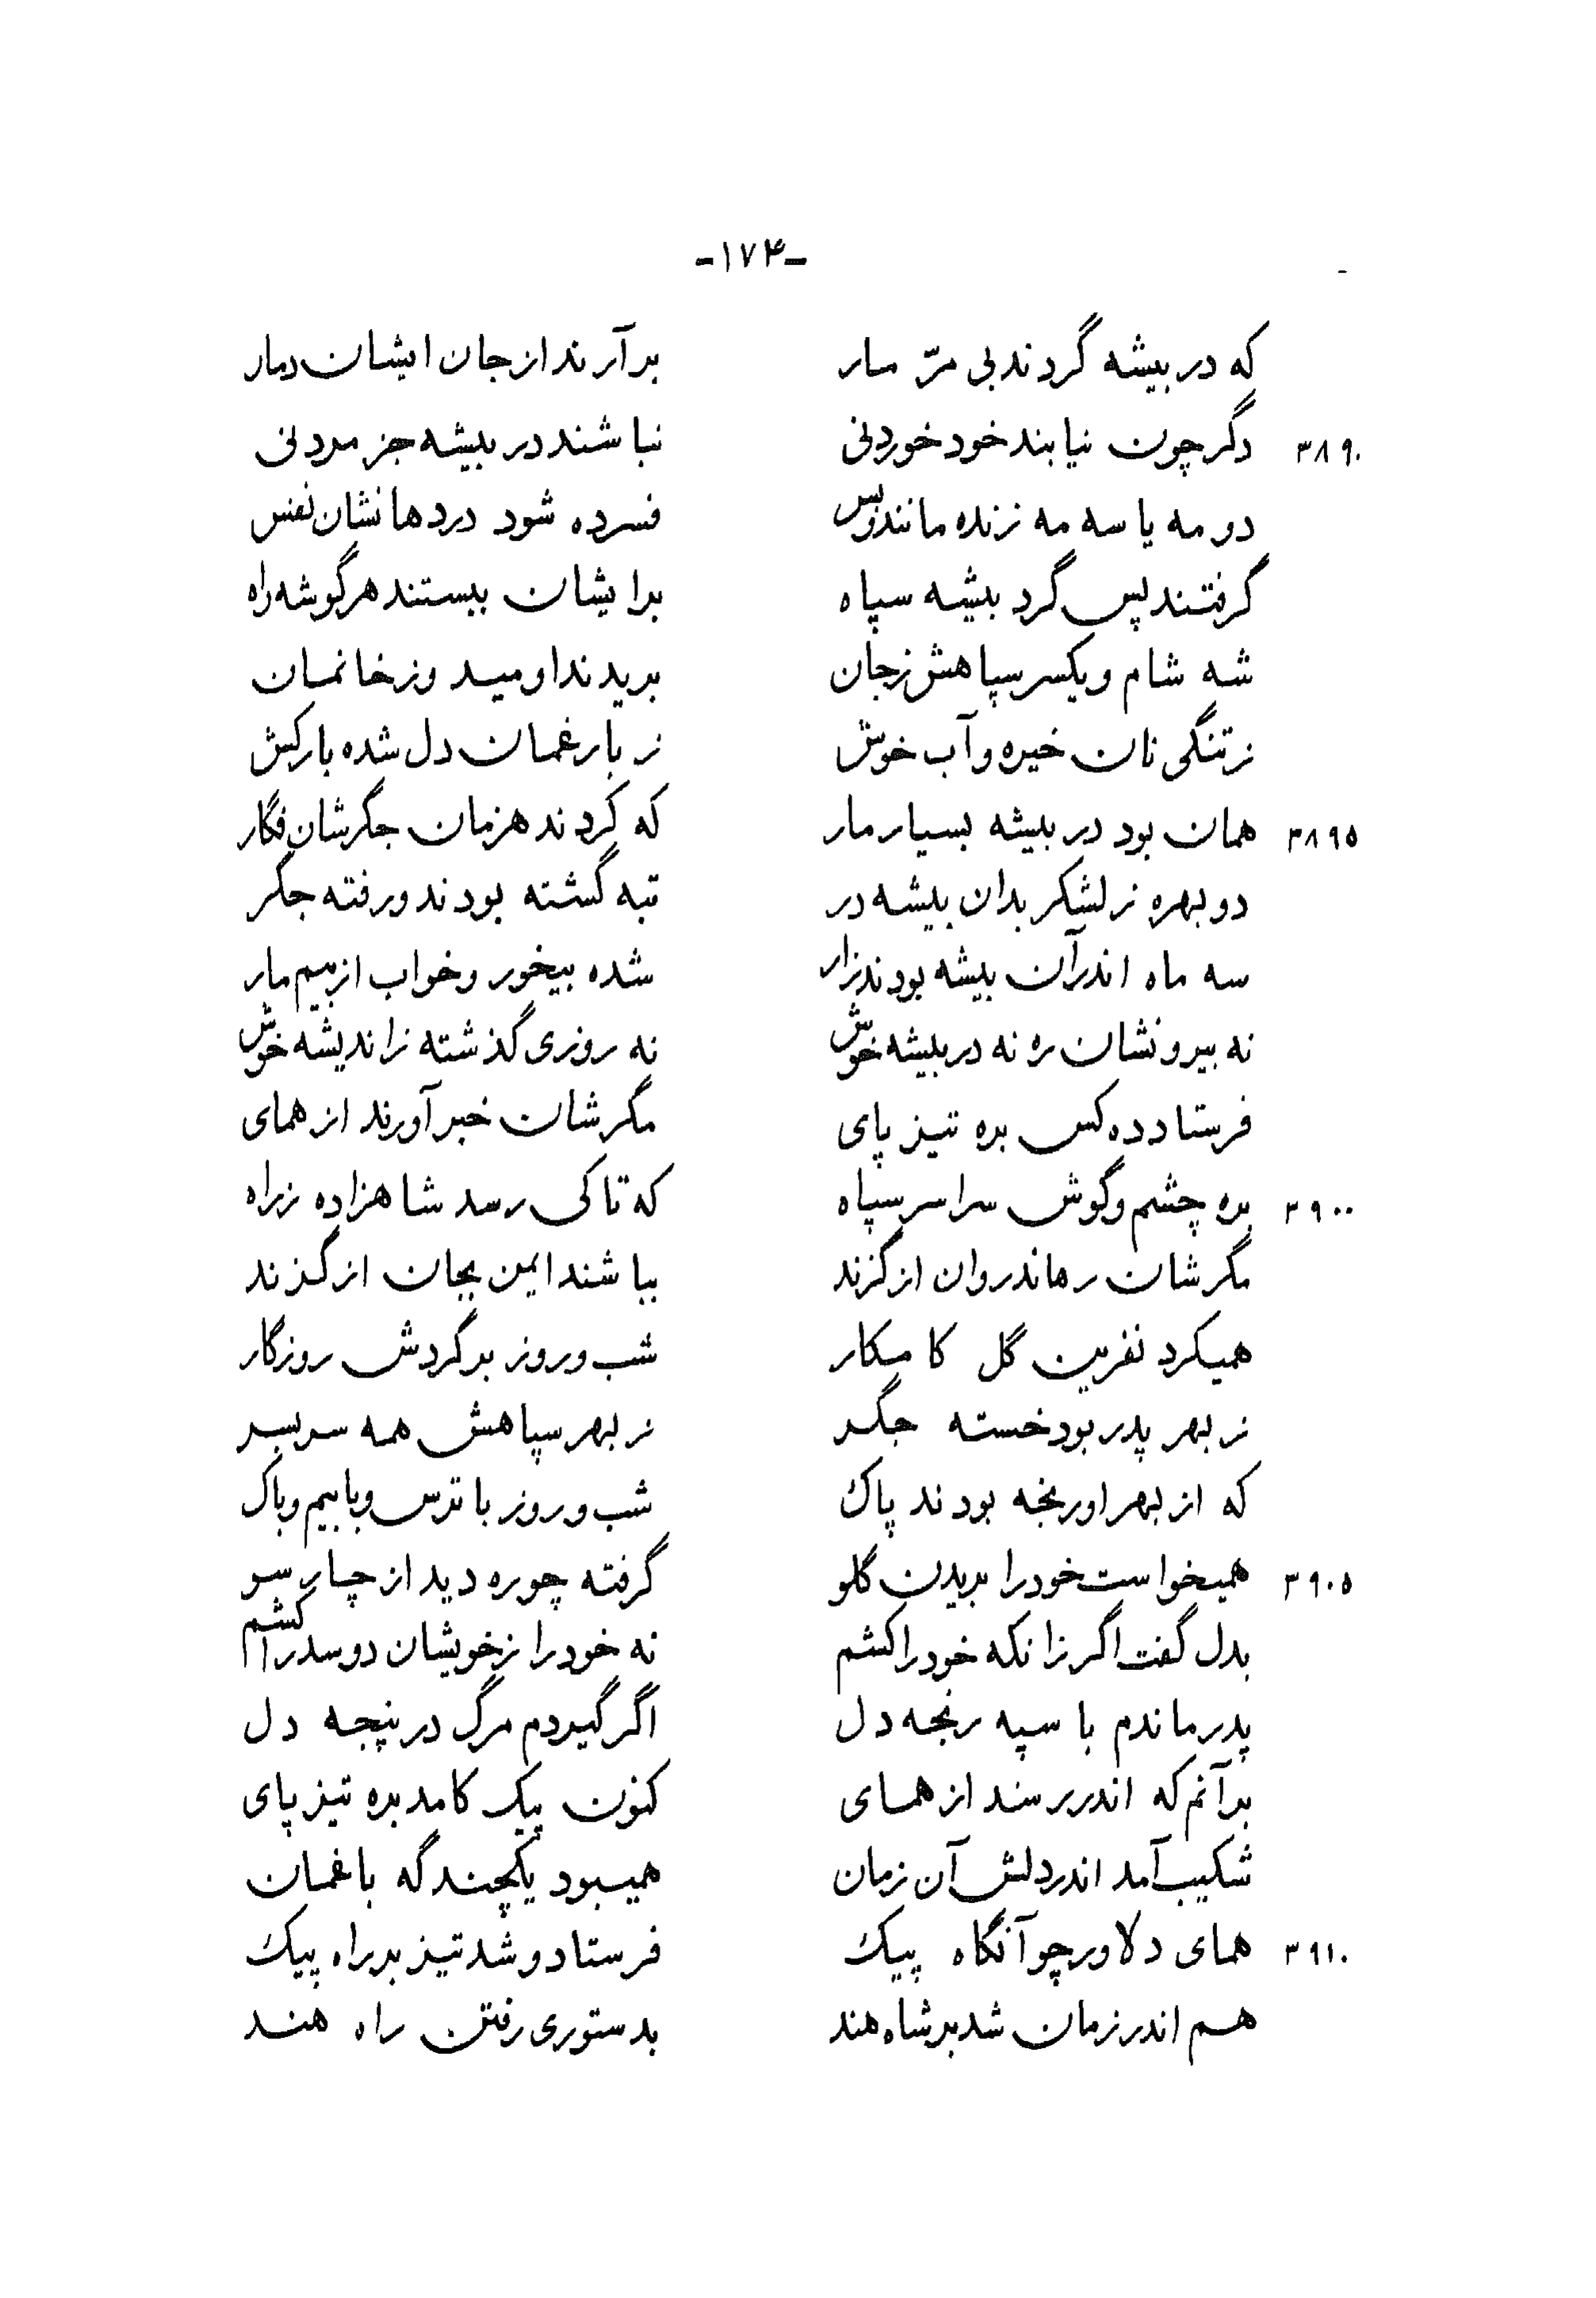 -۱۷۴-
که در بیشه گردند بی مرّ مار برآرند از جان ایشان دمار
۳۸۹۰ دگر چون نیابند خود خوردنی نباشند در بیشه جز مردنی
دو مه یا سه مه زنده مانند و بس فسرده شود در دهانشان نفس
گرفتند پس گرد بیشه سپاه بر ایشان ببستند هر گوشه راه
شه شام و یکسر سپاهش ز جان بریدند اومید وز خانمان
ز تنگی نان خیره و آب خوش ز بار غمان دل شده بارکش
۳۸۹۵ همان بود در بیشه بسیار مار که کردند هزمان جگرشان فگار
دو بهره ز لشکر بدان بیشه در تبه گشته بودند و رفته جگر
سه ماه اندر آن بیشه بودند زار شده بیخور و خواب از بیم مار
نه بیرونشان ره نه در بیشه خوش نه روزی گذشته ز اندیشه خوش
فرستاد ده کس بره تیز پای مگرشان خبر آورند از همای
۳۹۰۰ بره چشم و گوش سراسر سپاه که تا کی رسد شاهزاده ز راه
مگرشان رهاند روان از گزند بباشند ایمن بجان از گذند
همیکرد نفرین گل کامکار شب و روز بر گردش روزگار
ز بهر پدر بود خسته جگر ز بهر سپاهش همه سربسر
که از بهر او رنجه بودند پاک شب و روز با ترس و با بیم و باک
۳۹۰۵ همیخواست خود را بریدن گلو گرفته چو ره دید از چار سو
بدل گفت اگر زانکه خود را کشم نه خود را ز خویشان دو سد را کشم
پدر ماندم با سپه رنجه دل اگر گیردم مرگ در پنجه دل
برآنم که اندر رسند از همای کنون پیک کامد بره تیز پای
شکیب آمد اندر دلش آن زمان همیبود یکچندگه با غمان
۳۹۱۰ همای دلاور چو آنگاه پیک فرستاد و شد تیز بر راه پیک
هم اندر زمان شد بر شاه هند بدستوری رفتن راه هند